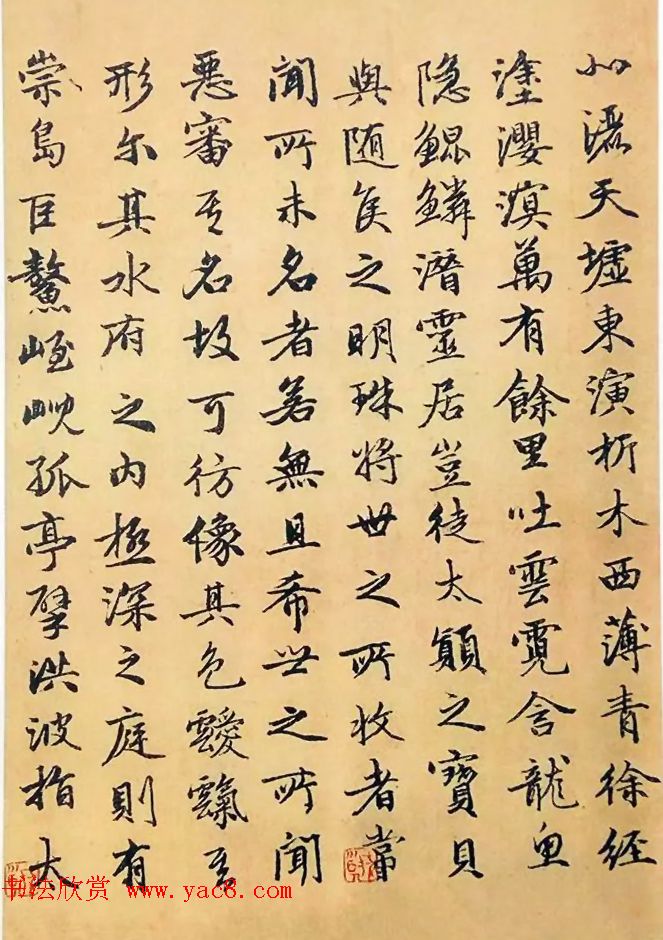 北灑天墟東演析木西薄青徐經
塗瀴溟萬有餘里吐雲霓含龍魚
隐鲲鳞潛靈居豈徒太顛之寶貝
與随侯之明珠將世之所收者常
聞所未名者若無且希世之所聞
惡審其名故可彷像其色靉霼其
形尔其水府之内極深之庭則有
崇島巨鳌峌峴孤亭擘洪波指太
书法欣赏 www.yac8.com